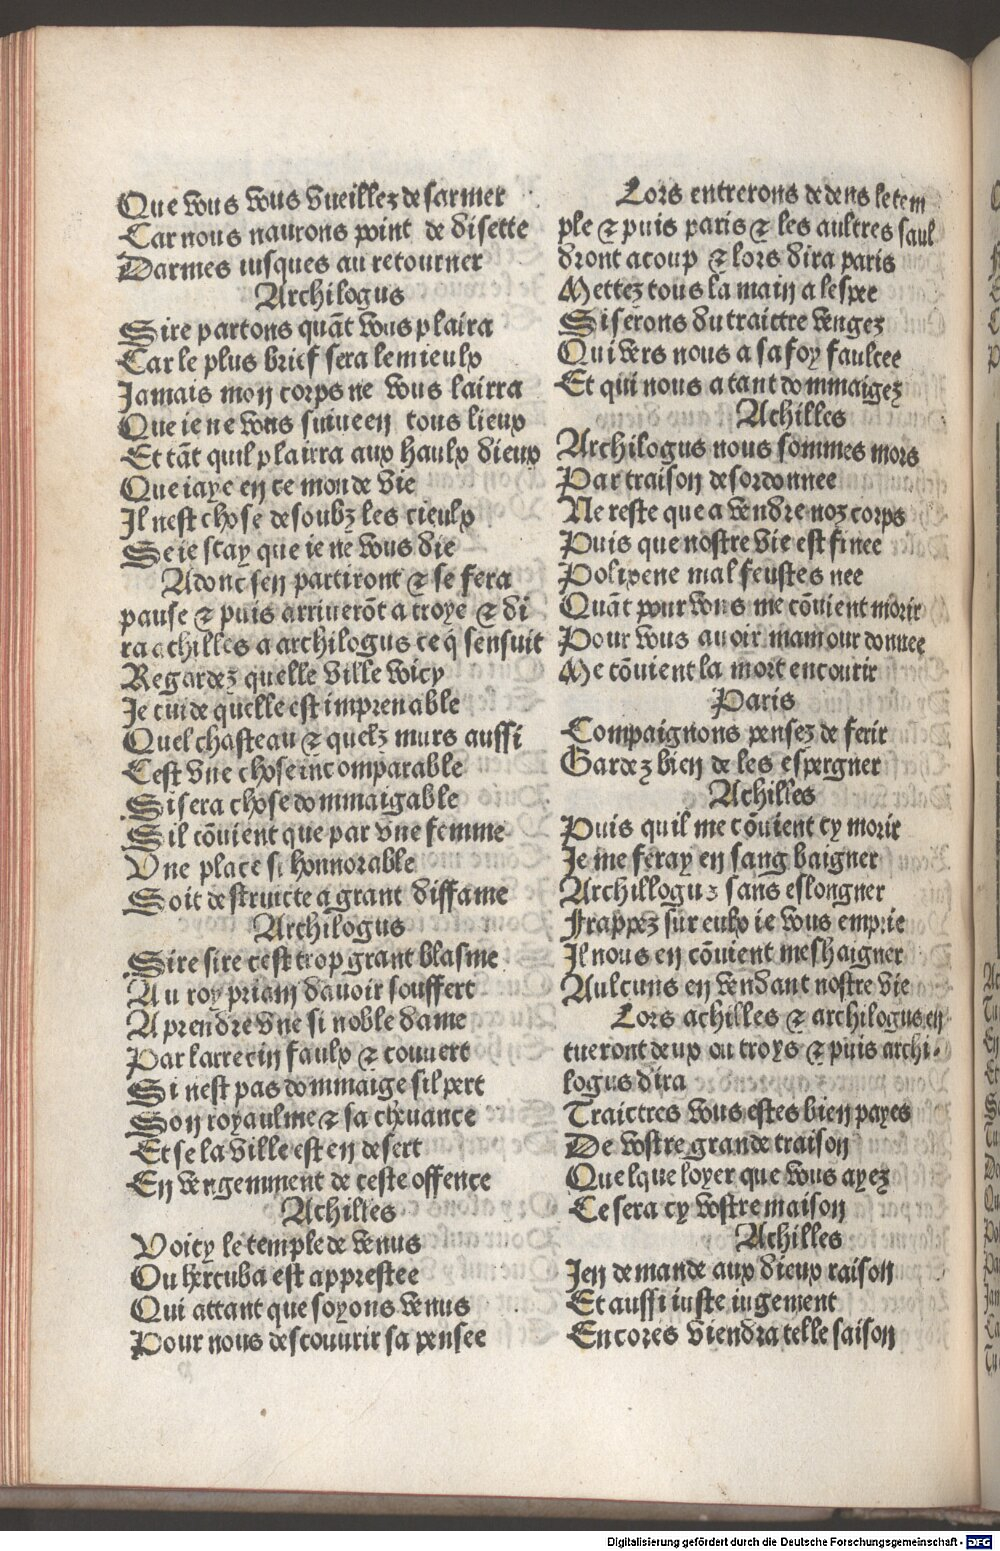 Que vous vous vueillez desarmer
Car nous naurons point de disette
Darmes iusques au retourner
Archilogus
Sire partons quāt vous plaira
Car le plus brief sera le mieulx
Jamais mon corps ne vous lairra
Que ie ne vous suiue en tous lieux
Et tāt quil plairra aux haulx dieux
Que iaye en ce monde vie
Il nest chose desoubz les cieulx
Se ie scay que ie ne vous die
Adonc sen partiront & se fera
pause & puis arriuerōt a troye & di
ra achilles a archilogus ce q̄ sensuit
Regardez quelle ville voicy
Je cuide quelle est imprenable
Quel chasteau & quelz murs aussi
Cest vne chose incomparable
Si sera chose dommaigable
Sil cōuient que par vne femme
Vne place si honnorable
Soit destruicte a grant diffame
Archilogus
Sire sire cest trop grant blasme
Au roy priam dauoir souffert
A prendre vne si noble dame
Par larrecin faulx & couuert
Si nest pas dommaige sil pert
Son royaulme & sa cheuance
Et se la ville est en desert
En vengemment de ceste offence
Achilles
Voicy le temple de venus
Ou hercuba est apprestee
Qui attant que soyons venus
Pour nous descouurir sa pensee
Lors entrerons dedens le tem
ple & puis paris & les aultres saul
dront a coup & lors dira paris
Mettez tous la main a lespee
Si serons du traictre vengez
Qui vers nous a sa foy faulcee
Et qui nous a tant dommaigez
Achilles
Archilogus nous sommes mors
Par traison desordonnee
Ne reste que a vendre noz corps
Puis que nostre vie est finee
Polixene mal feustes nee
Quāt pour vous me cōuient morir
Pour vous auoir mamour donnee
Me cōuient la mort encourir
Paris
Compaignons pensez de ferir
Gardez bien de les espergner
Achilles
Puis quil me cōuient cy morir
Je me feray en sang baigner
Archillogus sans eslongner
Frappez sur eulx ie vous emprie
Il nous en cōuient meshaigner
Aulcuns en vendant nostre vie
Lors achilles & archilogus en
tueront deux ou troys & puis archi-
logus dira
Traictres vous estes bien payes
De vostre grande traison
Quelque loyer que vous ayez
Ce sera cy vostre maison
Achilles
Jen demande aux dieux raison
Et aussi iuste iugement
Encores viendra telle saison
Digitalisierung gefördert durch die Deutsche Forschungsgemeinschaft - DFG